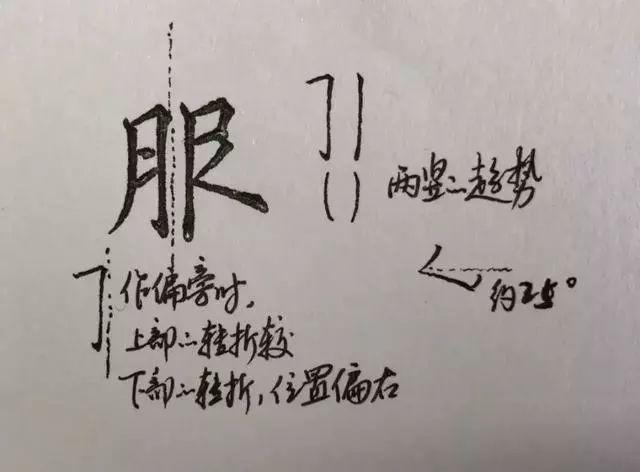 服
两竖的趋势
约25°
作偏旁时,
上部的转折较
下部的转折,位置偏右